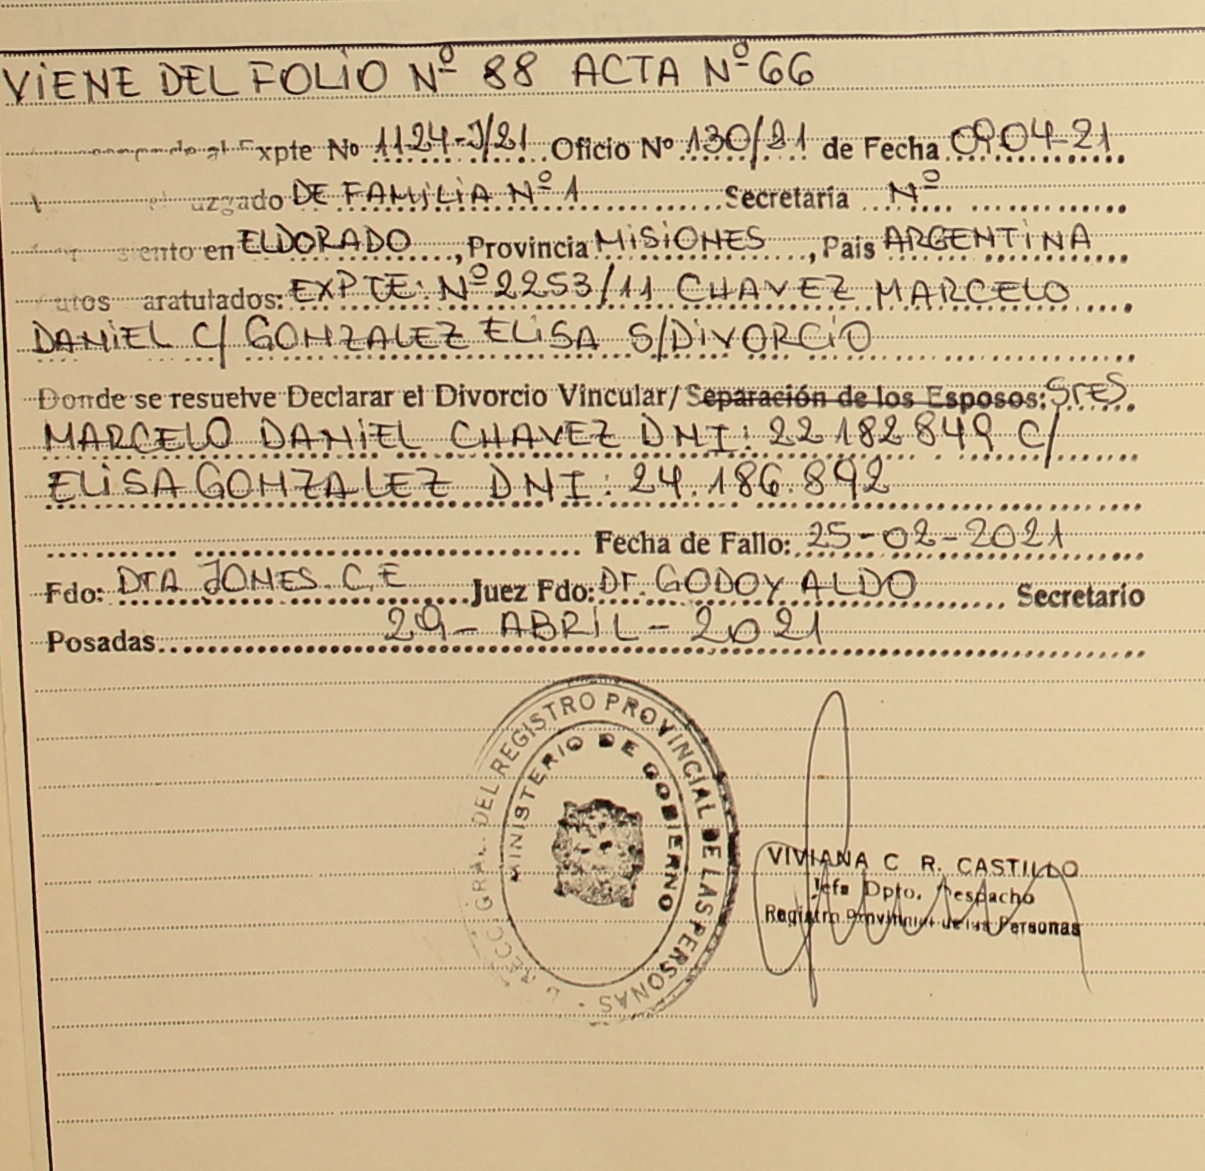 VIENE DEL FOLIO Nº 88 ACTA Nº 66
al Expte No 1124-J/21 Oficio Nº 130/21 de Fecha 09-04-21
DE FAMILIA Nº 1 Secretaría Nº
en ELDORADO, Provincia MISIONES, País ARGENTINA
EXPTE: Nº 2253/11 CHAVEZ MARCELO
DANIEL C/ GONZALEZ ELISA S/DIVORCIO
Donde se resuelve Declarar el Divorcio Vincular/Separación de los Esposos: Sres
MARCELO DANIEL CHAVEZ DNI: 22 182 849 C/
ELISA GONZALEZ DNI: 24.186.892
Fecha de Fallo: 25-02-2021
Fdo: Dra JONES. C.E Juez Fdo: Dr. GODOY ALDO Secretario
Posadas 29 - ABRIL - 2021
GRAL. DEL REGISTRO PROVINCIAL DE LAS PERSONAS
MINISTERIO DE GOBIERNO
VIVIANA C R. CASTILLO
Jefa Dpto. Despacho
Registro Provincial de las Personas